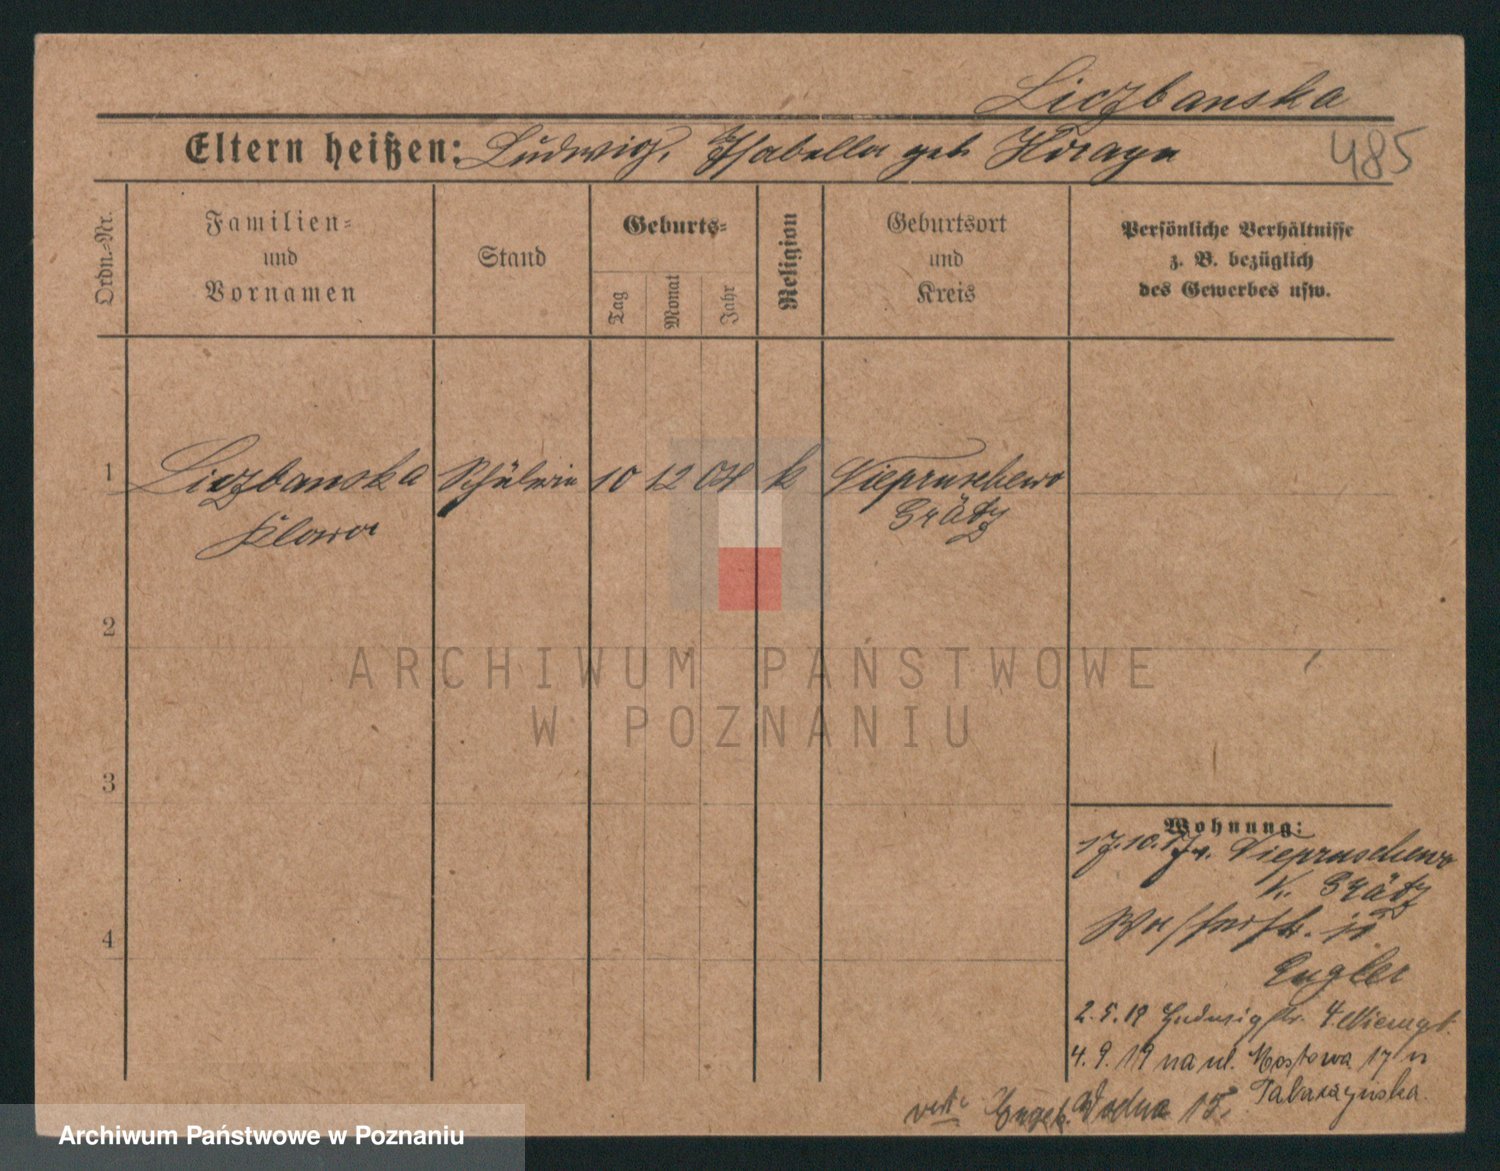 Liczbanska
Eltern heißen: Ludwig, Isabella geb.
485
Ordn.-Nr.
Familien-
und
Vornamen
Stand
Geburts-
Tag
Monat
Jahr
Religion
Geburtsort
und
Kreis
Persönliche Verhältnisse
z. B. bezüglich
des Gewerbes usw.
1 Liczbanska Schülerin 10 12 04 k Viepruschewo
Klara Grätz
2
3
4
Wohnung:
17.10.17 v. Viepruschewo
K. Grätz
Wasserstr. 11
Engler
2.5.19 Ludwigstr. 4
4.9.19 na ul. Mostowa 17 u
Tabaczyńska.
Wodna 15.
ARCHIWUM PAŃSTWOWE
W POZNANIU
Archiwum Państwowe w Poznaniu